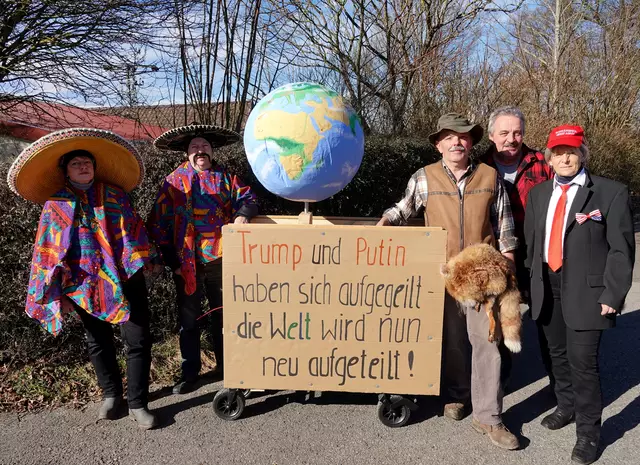 Trump und Putin
haben sich aufgegeilt -
die Welt wird nun
neu aufgeteilt!